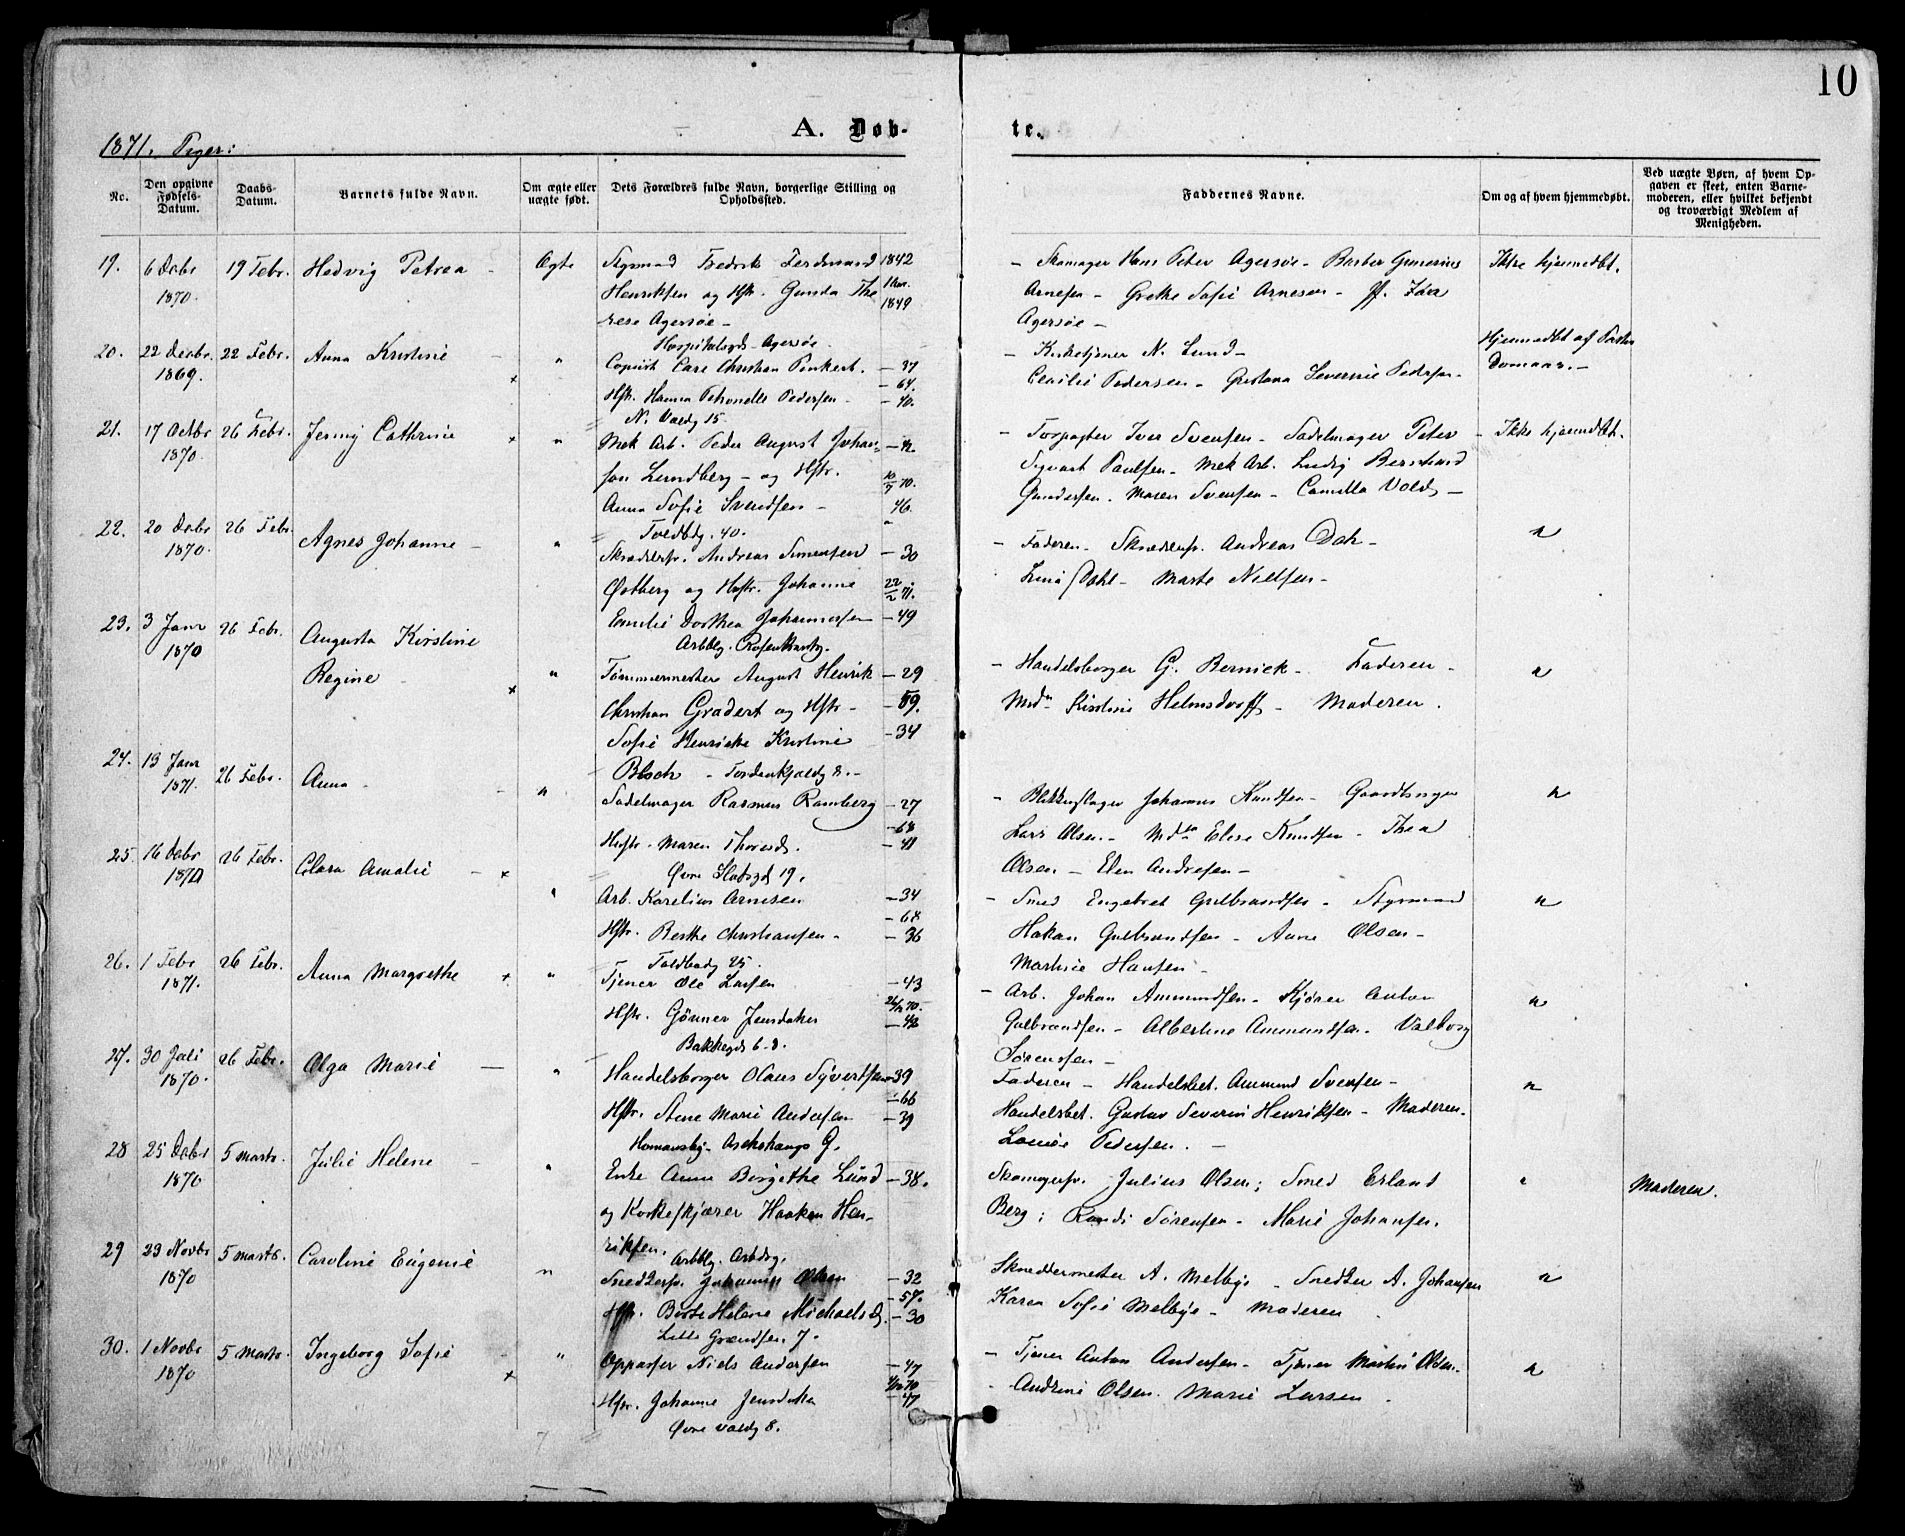 10
A. Døb-
te.
1871. Piger:
No.
Den opgivne Fødsels-Datum.
Daabs-Datum.
Barnets fulde Navn.
Om ægte eller uægte født.
Dets Forældres fulde Navn, borgerlige Stilling og Opholdssted.
Faddernes Navne.
Om og af hvem hjemmedøbt.
Ved uægte Børn, af hvem Op-
gaven er skeet, enten Barne-
moderen, eller hvilket bekjendt
og troværdigt Medlem af
Menigheden.
19. 6 Decbr 1870. 19 Febr. Hedvig Petrea - Ægte
Fredrik Ferdinand 1842
Henriksen og Hstr. Gunda The 1849
rese Agersøe -
Agersøe
- Skomager Hans Peter Agersøe - Gunerius
Arnesen - Grethe Sofie Arnesen - Jf.
Agersøe -
Ikke hjemmedøbt.
20. 22 Decbr. 1869. 22 Febr. Anna Kristine - "
Copiist Carl Christian Pinkert. - 37
- 64.
Hstr. Hanna Petronelle Pedersen - - 40.
N. Voldg 15
- Kirketjener N. Lund -
Cecilie Pedersen - Severine Pedersen -
Hjemmedøbt af Pastor
21. 17 Octbr 1870. 26 Febr. Jenny Cathrine "
Mek Arb. Peder August Johan-
sen Lundberg - og Hstr. 10/7 70.
Anna Sofie Svendsen - 46.
Toldbdg. 40.
- Iver Svensen - Sadelmager Peter
Sigvart Paulsen - Mek Arb. Ludvig Bernhard
Gundersen. Maren Svensen - Camilla Vold -
- Ikke hjemmedøbt.
22. 20 Decbr 1870. 26 Febr. Agnes Johanne - "
Skrædersv. Andreas Simensen - 30
Østberg og Hstr. Johanne 22/2 71.
Emilie Dorthea Johannesen - 49
Arbbg. Rosenkrantzg.
- Faderen - Skrædersv. Andreas Dah -
Lina Dahl - Marte Nielsen -
"
23. 3 Janr 1870 26 Febr. Augusta Kirstine
Regine - "
Tømmermester August Henrik - 29
Christian Gradert og Hstr - - 59.
Sofie Henriette Kristine - 34
Bloch - Tordenskjoldg 8. -
- Handelsborger G. Bernick - Faderen -
Mdm Kirstine Helmsdorff - Moderen.
"
24. 13 Janr 1871. 26 Febr. Anna - "
Sadelmager Rasmus Ramberg - 27
- 68
Hustr. Maren Thoresd. - 41
Øvre Slotsgd 19.
- Blikkenslager Johannes Knudsen - Gaardbruger
Lars Olsen - Mdm Elise Knudsen - Thea
Olsen - Elen Andresen -
"
25. 16 Decbr 1870 26 Febr. Clara Amalie - "
Arb. Karelius Arnesen - 34
- 68
Hstr. Berthe Christiansen - - 36
Toldbodg 25.
- Smed Engebret Gulbrandsen - Styrmand
Hakan Gulbrandsen - Anne Olsen -
Martine Hansen -
"
26. 1 Febr 1871. 26 Febr. Anna Margrethe "
Tjener Ole Larsen - 43
Hstr. Gunner Jensdatter - 42
Bakkegd 6-8.
- Arb. Johan Ammundsen - Kjører Anton
Gulbrandsen - Albertine Ammundsen - Valborg
Sørensen -
"
27. 30 Juli 1870. 26 Febr. Olga Marie - "
Handelsborger Olaus Syvertsen - 39
- 66
Hstr. Anne Marie Andersen - 39
Homansby - Aschehougs G.
Faderen - Handelsbet. Ammund Svensen -
Handelsbet. Gustav Severin Henriksen - Moderen.
Louise Pedersen. -
"
28 25 Decbr 1870 5 Marts. Julie Helene - "
Enke Anne Birgithe Lund - 38.
og Korkeskjærer Haaken Hen-
riksen.
Skomagersv. Julius Olsen; Smed Erland
Berg; Randi Sørensen - Marie Johansen.
"
Moderen.
29 23 Novbr 1870 5 Marts. Caroline Eugenie "
Snedkersv. Johannes Olsen - 32
- 57.
Hstr. Berte Helene Michaelsd. - 30
Lille Grændsen 7.
Skreddermester A. Melbye - Snedker A. Johansen
Karen Sofie Melbye - Moderen.
"
30. 1 Novbr 1870 5 Marts. Ingeborg Sofie "
Oppasser Niels Andersen - 47
Hstr. Johanne Jensdatter - 47
Øvre Voldg 8.
- Tjener Anton Andersen - Tjener Martin Olsen.
- Andrine Olsen. Marie Larsen.
"